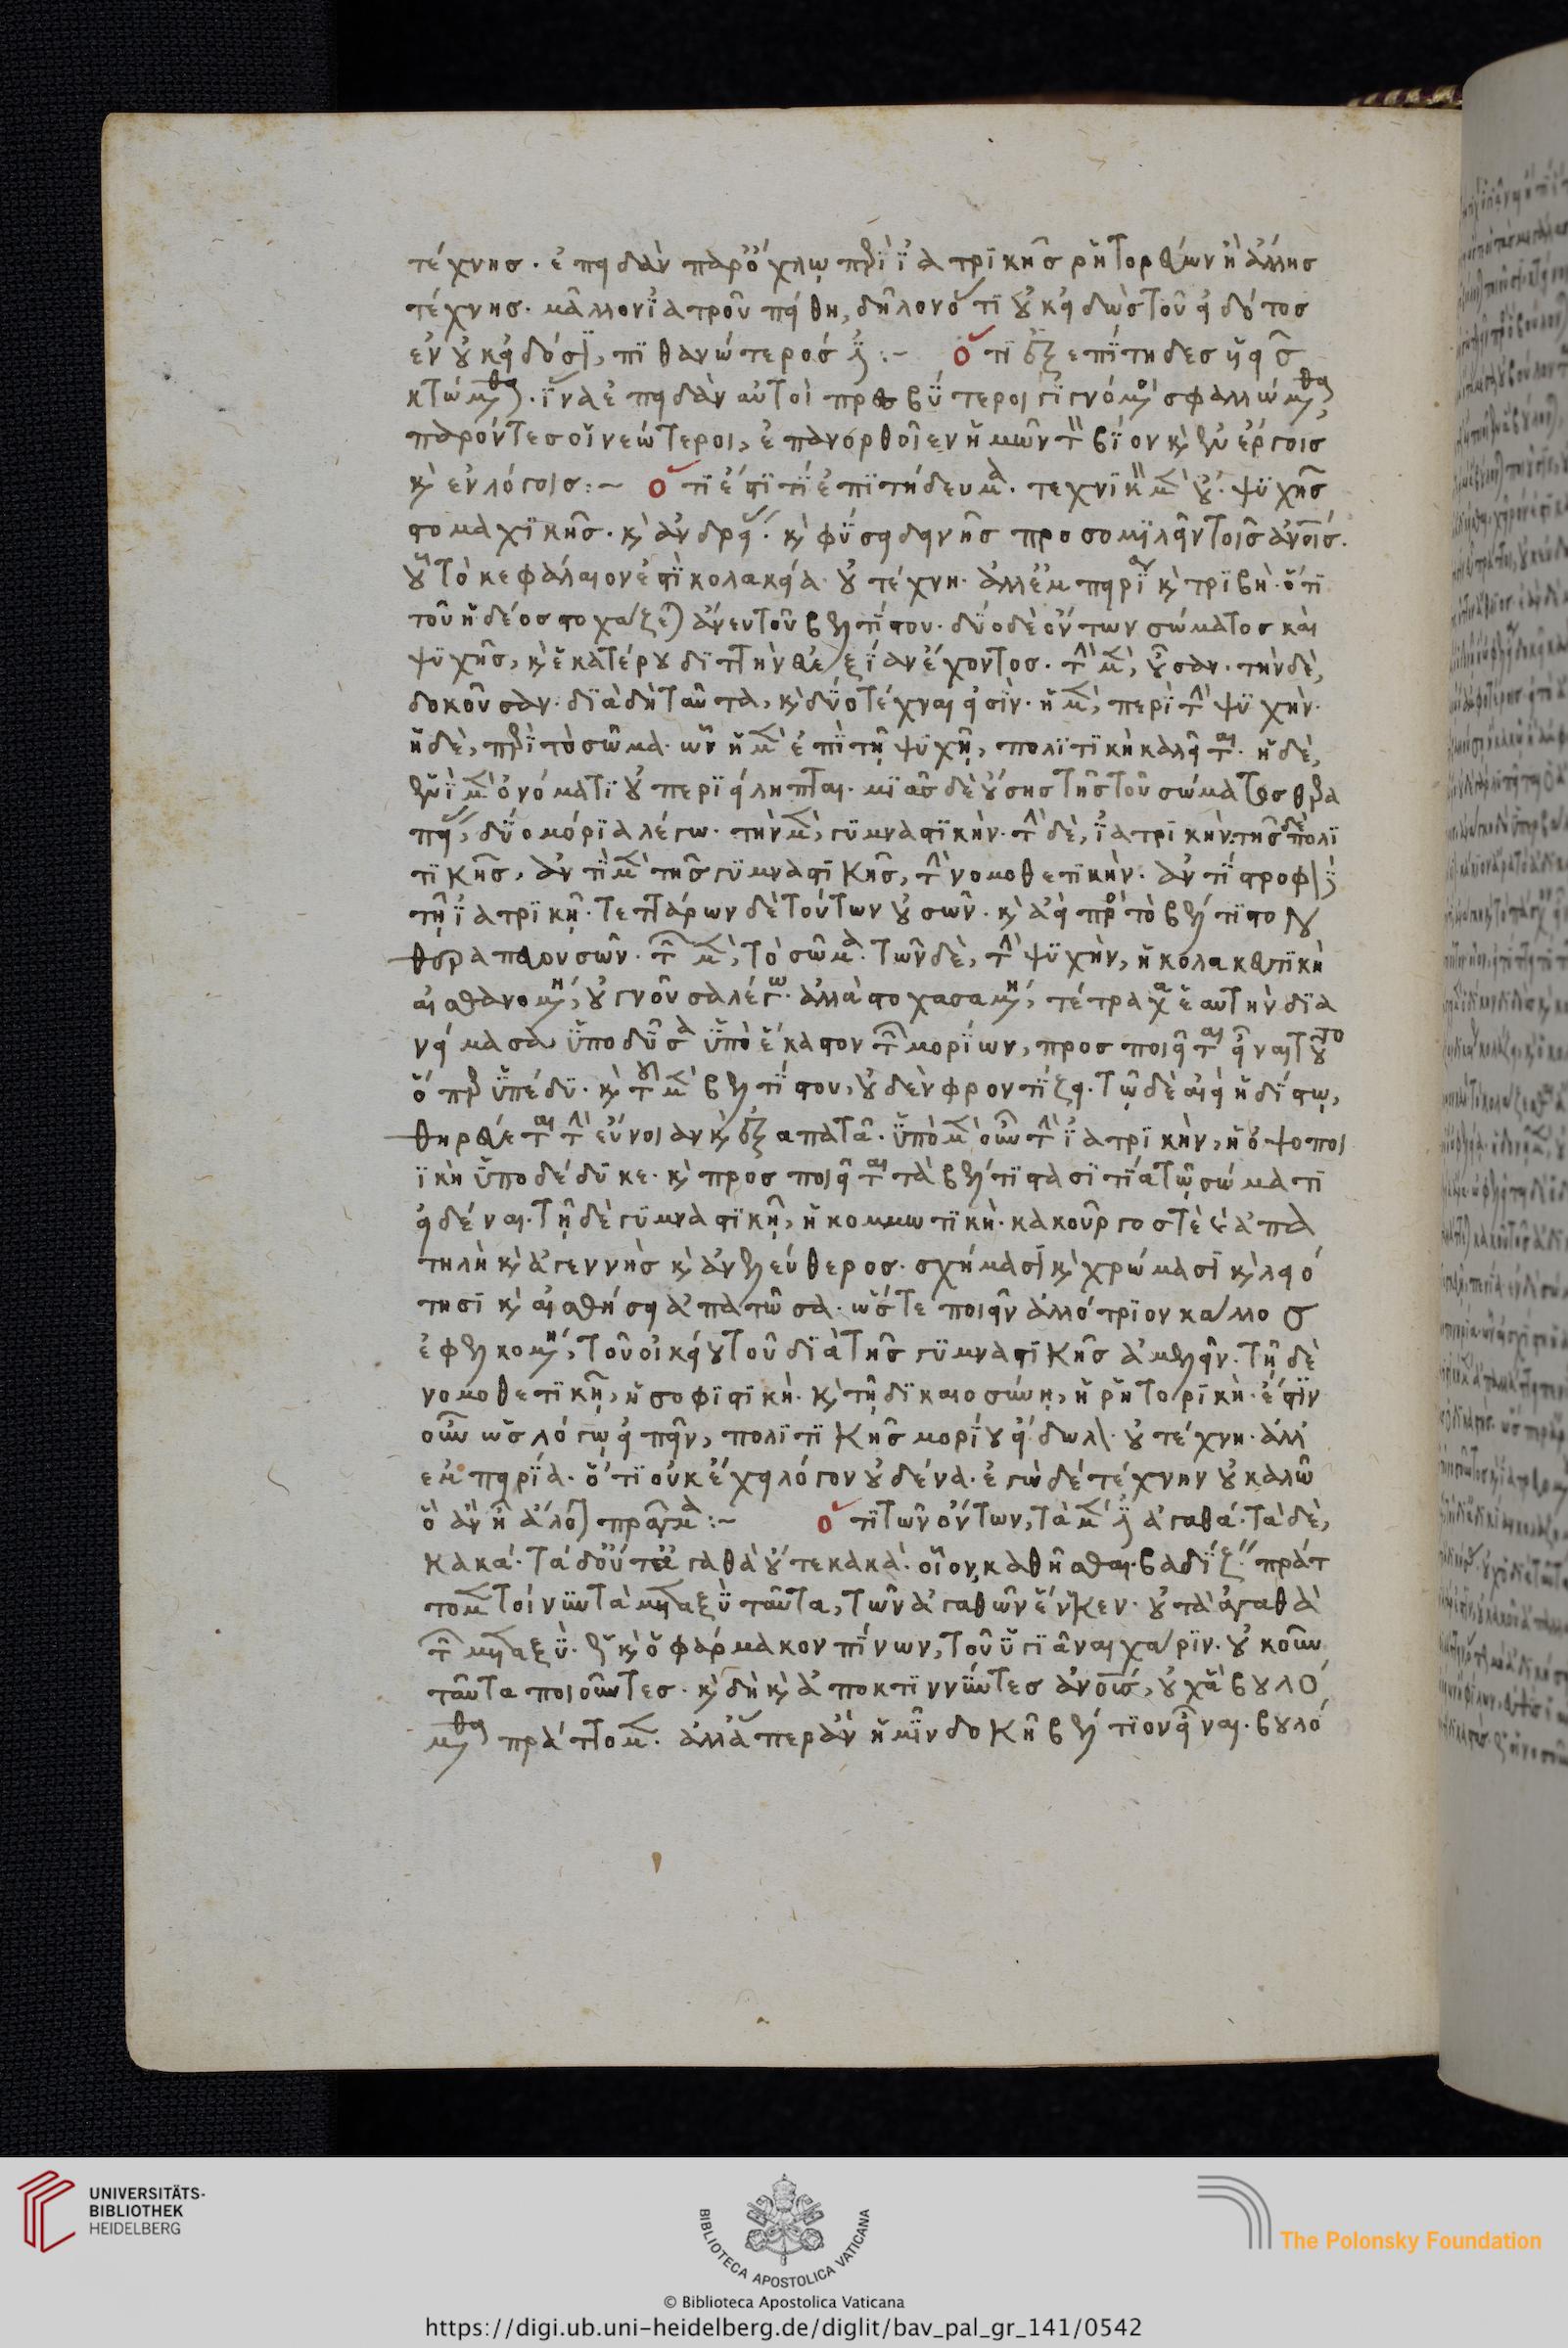 τέχνης. ἐπειδὰν παρ' ὄχλῳ περὶ ἰατρικῆς ῥητορεύων ἢ ἄλλης
τέχνης. μᾶλλον ἰατροῦ πείθῃ, δηλονότι οὐκ εἰδὼς τοῦ εἰδότος
ἐν οὐκ εἰδόσι, πιθανώτερός ἐστι:~ ὅτι ἐξεπίτηδες υἱεῖς
κτώμεθα. ἵνα ἐπειδὰν αὐτοὶ πρεσβύτεροι γιγνόμενοι σφαλλώμεθα,
παρόντες οἱ νεώτεροι, ἐπανορθοῖεν ἡμῶν τὸν βίον καὶ ἐν ἔργοις
καὶ ἐν λόγοις:~ ὅτι ἔστι τι ἐπιτήδευμα. τεχνικὸν μὲν οὔ. ψυχῆς
στοχαστικῆς. καὶ ἀνδρείας. καὶ φύσει δεινῆς προσομιλεῖν τοῖς ἀνοις.
οὗ τὸ κεφάλαιον ἐστὶ κολακεία. οὐ τέχνη. ἀλλ' ἐμπειρία καὶ τριβή. ὅτι
τοῦ ἡδέος στοχάζεται ἄνευ τοῦ βελτίστου. δύο δὲ ὄντων σώματος καὶ
ψυχῆς, καὶ ἑκατέρου διττὴν εὐεξίαν ἔχοντος. τὴν μὲν, οὖσαν. τὴν δὲ,
δοκοῦσαν. διὰ δὴ ταῦτα, καὶ δύο τέχναι εἰσίν. ἡ μὲν, περὶ τὴν ψυχήν.
ἡ δὲ, περὶ τὸ σῶμα. ὧν ἡ μὲν ἐπὶ τῇ ψυχῇ, πολιτικὴ καλεῖται. ἡ δὲ,
ἑνὶ μὲν ὀνόματι οὐ περιείληπται. μιᾶς δὲ οὔσης τῆς τοῦ σώματος θερα
πείας, δύο μόρια λέγω. τὴν μὲν, γυμναστικήν. τὴν δὲ, ἰατρικήν. τῆς δὲ πολι
τικῆς, ἀντὶ μὲν τῆς γυμναστικῆς, τὴν νομοθετικήν. ἀντίστροφον δὲ
τῇ ἰατρικῇ. τεττάρων δὲ τούτων οὐσῶν. καὶ ἀεὶ πρὸς τὸ βέλτιστον
θεραπευουσῶν. τῶν μὲν, τὸ σῶμα. τῶν δὲ, τὴν ψυχὴν, ἡ κολακευτικὴ
αἰσθανομένη, οὐ γνοῦσα λέγω. ἀλλὰ στοχασαμένη, τέτραχα ἑαυτὴν δια
νείμασα, ὑποδῦσα ὑπὸ ἕκαστον τῶν μορίων, προσποιεῖται εἶναι τοῦτο
ὅπερ ὑπέδυ. καὶ τοῦ μὲν βελτίστου, οὐδὲν φροντίζει. τῷ δὲ ἀεὶ ἡδίστῳ,
θηρεύεται τὴν εὔνοιαν καὶ ἐξαπατᾶ. ὑπὸ μὲν οὖν τὴν ἰατρικὴν, ἡ ὀψοποι
ϊκὴ ὑποδέδυκε. καὶ προσποιεῖται τὰ βέλτιστα σιτία τῷ σώματι
εἰδέναι. τῇ δὲ γυμναστικῇ, ἡ κομμωτικὴ. κακοῦργος τὲ καὶ ἀπα
τηλὴ καὶ ἀγεννὴς καὶ ἀνελεύθερος. σχήμασι καὶ χρώμασι καὶ λειό
τησι καὶ αἰσθήσει ἀπατῶσα. ὥστε ποιεῖν ἀλλότριον κάλλος
ἐφελκομένη, τοῦ οἰκείου τοῦ διὰ τῆς γυμναστικῆς ἀμελεῖν. τῇ δὲ
νομοθετικῇ, ἡ σοφιστικὴ. καὶ τῇ δικαιοσύνῃ, ἡ ῥητορικὴ. ἔστιν
οὖν ὡς λόγῳ εἰπεῖν, πολιτικῆς μορίου εἴδωλον. οὐ τέχνη. ἀλλ'
ἐμπειρία. ὅτι οὐκ ἔχει λόγον οὐδένα. ἐγὼ δὲ τέχνην οὐ καλῶ
ὃ ἂν ᾖ ἄλογον πρᾶγμα:~ ὅτι τῶν ὄντων, τὰ μέν ἐστι ἀγαθά. τὰ δὲ,
κακά. τὰ δ' οὔτε ἀγαθὰ οὔτε κακά. οἷον, καθῆσθαι. βαδίζειν. πράτ
τομεν τοίνυν τὰ μεταξὺ ταῦτα, τῶν ἀγαθῶν ἕνεκεν. οὐ τὰ ἀγαθὰ
τῶν μεταξύ. ὡς καὶ ὁ φάρμακον πίνων, τοῦ ὑγιᾶναι χάριν. οὐκοῦν
ταῦτα ποιοῦντες. καὶ δὴ καὶ ἀποκτιννύντες ἀνοις, οὐχ ἃ βουλό
μεθα πράττομεν. ἀλλ' ἅπερ ἂν ἡμῖν δοκῇ βέλτιον εἶναι. βουλό
UNIVERSITÄTS-
BIBLIOTHEK
HEIDELBERG
BIBLIOTECA APOSTOLICA VATICANA
The Polonsky Foundation
© Biblioteca Apostolica Vaticana
https://digi.ub.uni-heidelberg.de/diglit/bav_pal_gr_141/0542